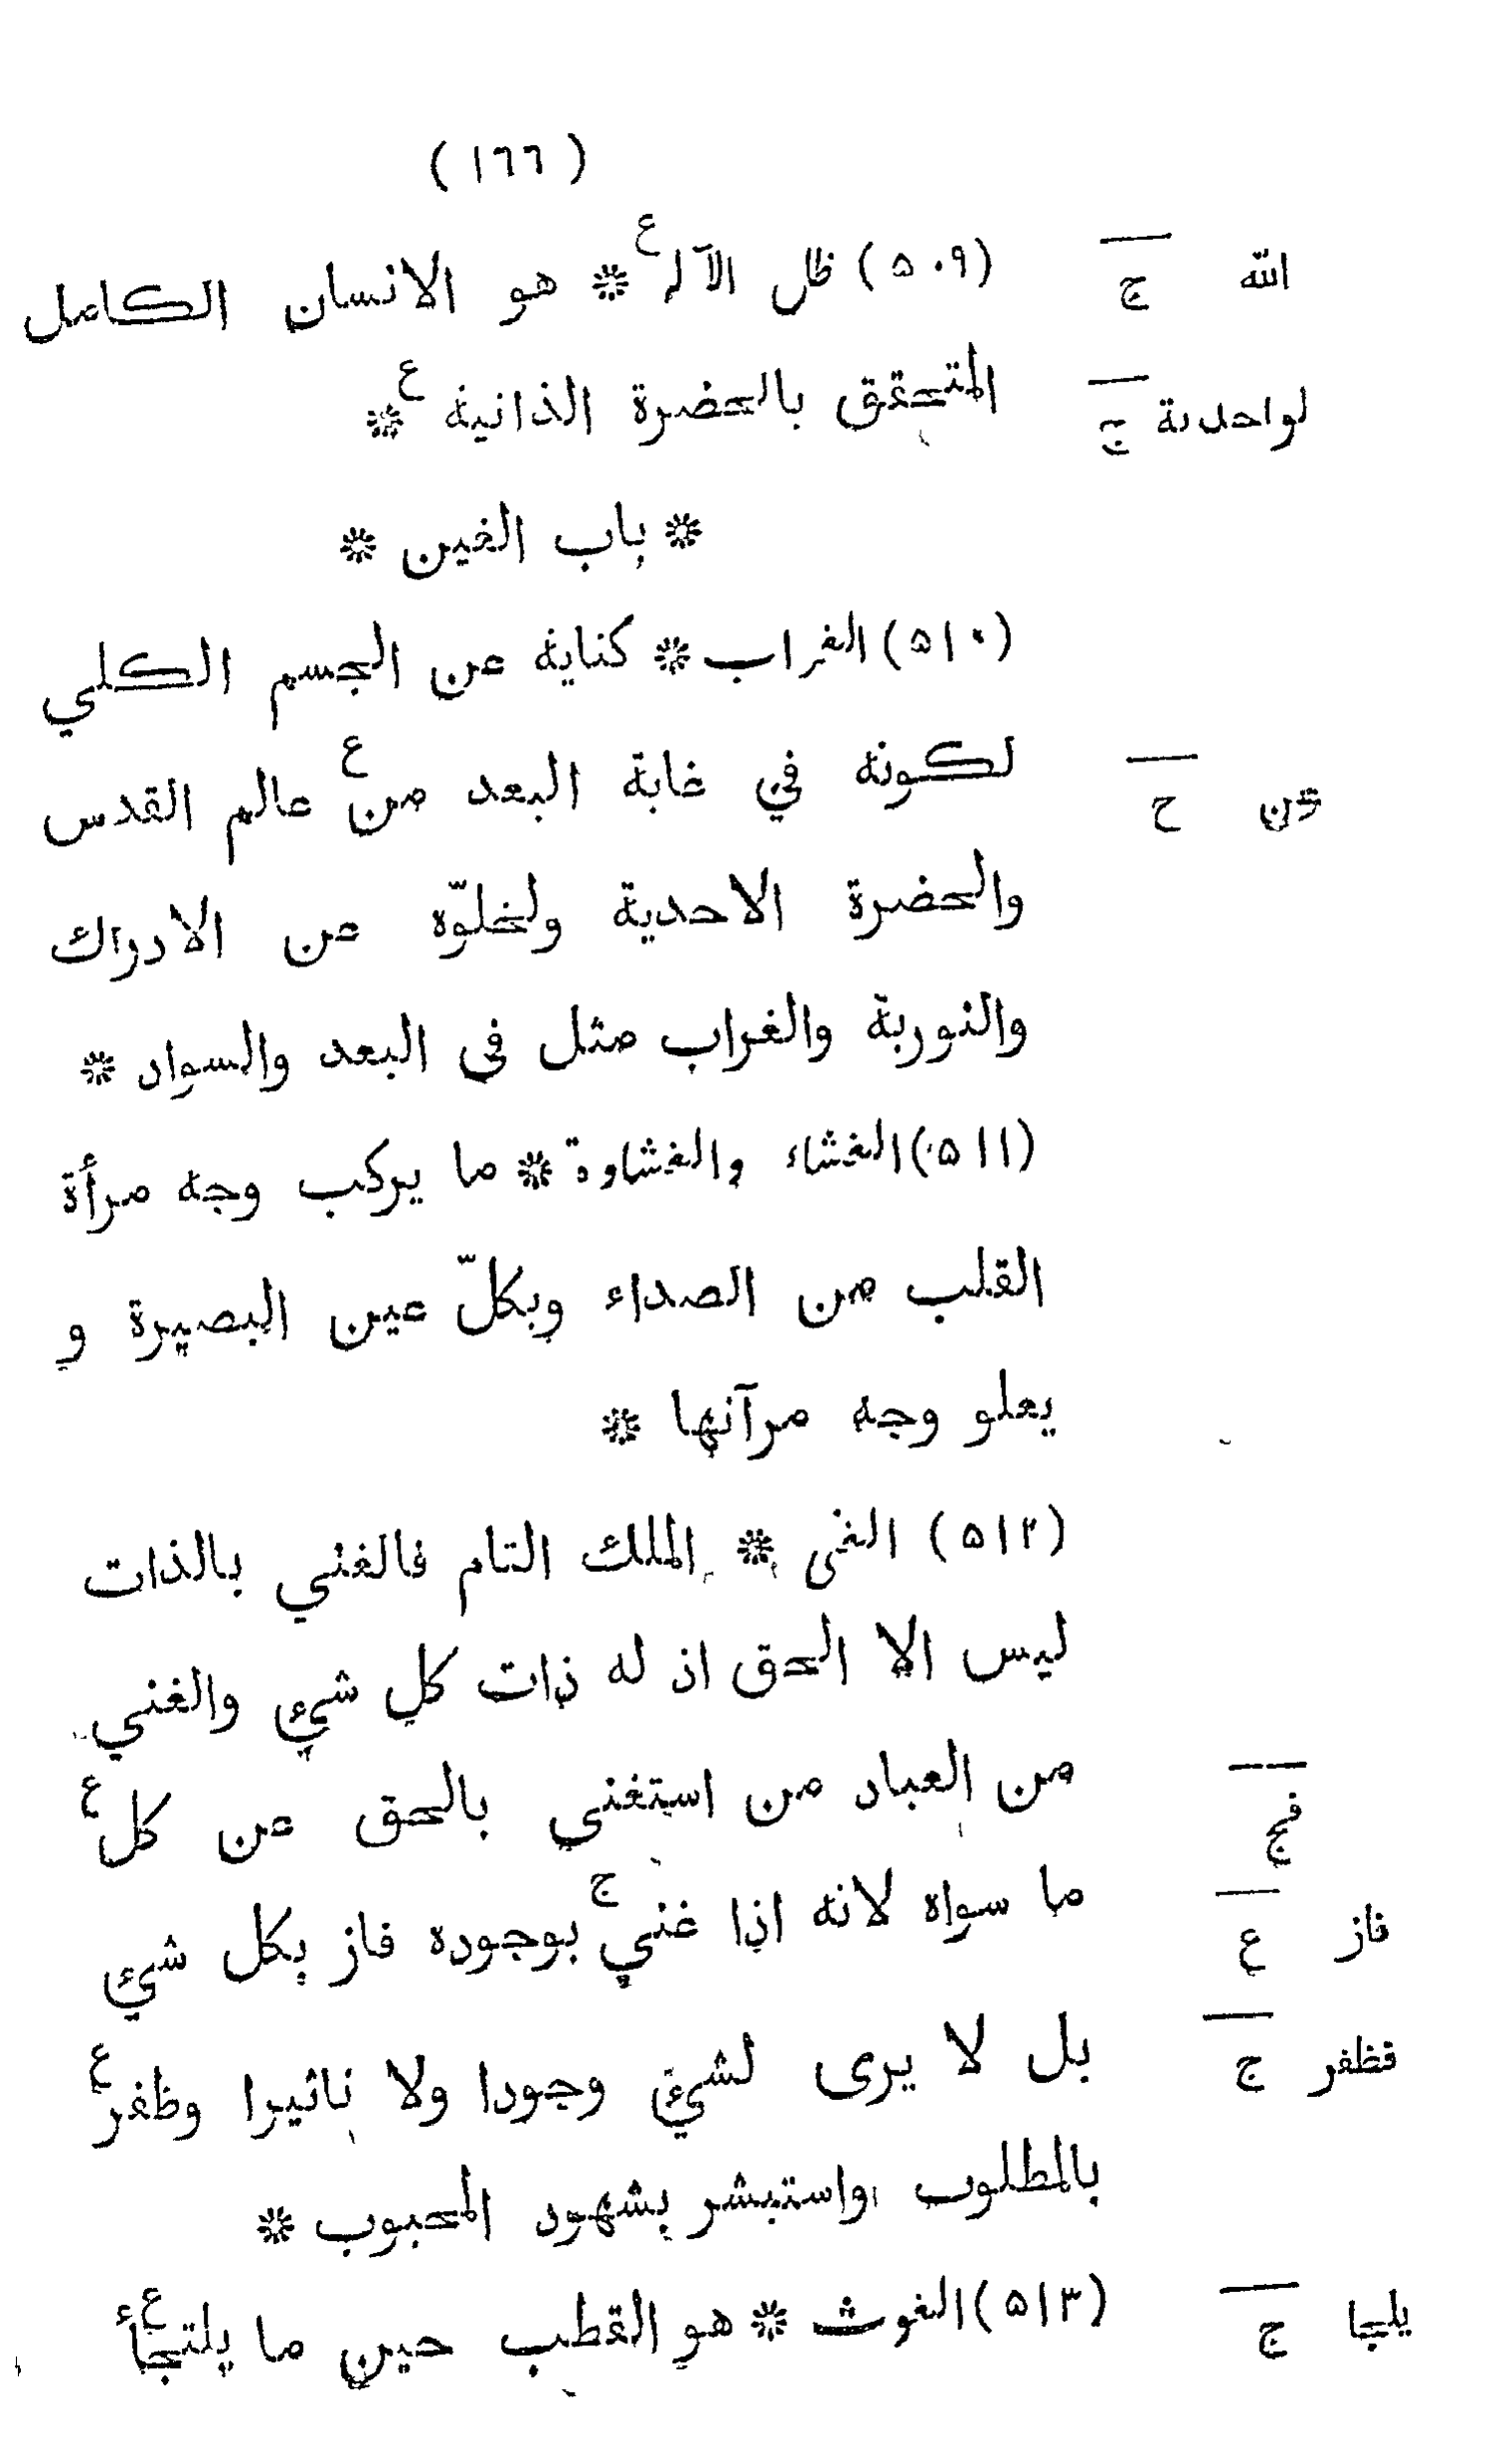 (١٦٦)
(٥٠٩) ظل الآله ع * هو الانسان الكامل
الله ج
المتحقق بالحضرة الذاتية ع *
لواحدية ج
* باب الغين *
(٥١٠) الغراب * كناية عن الجسم الكلي
لكونه في غاية البعد من ع عالم القدس
عن ح
والحضرة الاحدية ولخلوّه عن الادراك
والنورية والغراب مثل في البعد والسواد *
(٥١١) الغشاء والغشاوة * ما يركب وجه مرأة
القلب من الصداء وبكلّ عين البصيرة و
يعلو وجه مرآتها *
(٥١٢) الغنى * الملك التام فالغني بالذات
ليس الا الحق اذ له ذات كل شيء والغني
من العباد من استغنى بالحق عن كل ع
ج
ما سواه لانه اذا غني ج بوجوده فاز بكل شيء
فاز ع
بل لا يرى لشيء وجودا ولا تاثيرا وظفر ع
فظفر ج
بالمطلوب واستبشر بشهود المحبوب *
(٥١٣) الغوث * هو القطب حين ما يلتجأ ع
يلجا ج